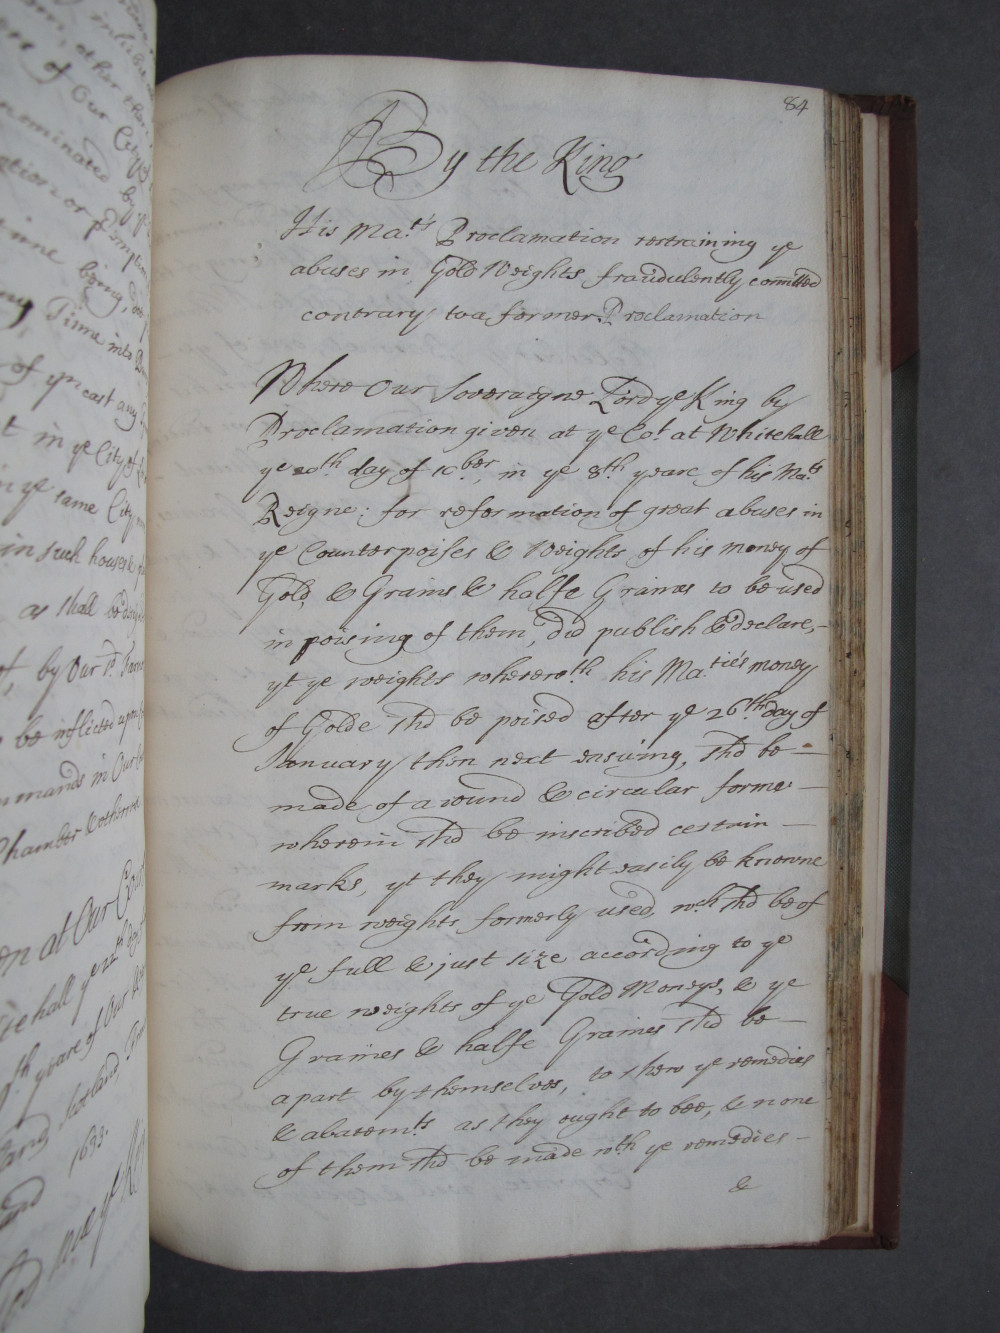 84
By the King
His Ma.ts Proclamation restraining ye
abuses in Gold Weights fraudulently com̄itted
contrary to a former Proclamation
Where Our Soveraigne Lord ye King by
Proclamation given at ye Co.t at Whitehall
ye 20th day of 10ber, in ye 8th yeare of his Ma.ts
Reigne: for reformation of great abuses in
ye Counterpoises & Weights of his money of
Gold, & Grains & halfe Graines to be used
in poising of them, did publish & declare,
yt ye weights wherewth his Ma.ties money
of Golde shd be poised after ye 26th day of
January then next ensuing, shd be
made of a round & circular forme
wherein shd be inscribed certain
marks, yt they might easily be knowne
from weights formerly used, wch shd be of
ye full & just size according to ye
true weights of ye Gold Moneys, & ye
Graines & halfe Graines shd be
apart by themselves, to shew ye remedies
& abatemts as they ought to bee, & none
of them shd be made wth ye remedies
&
of Our City
by ye
Time into
of ym cast any
t in ye City of
in ye same City
in such houses &
as shall be
by Our sd
be inflicted upon
mmands in Our
Chamber & otherwise
en at Our Court
itehall ye
th yeare of Our
Scotland,
1633.